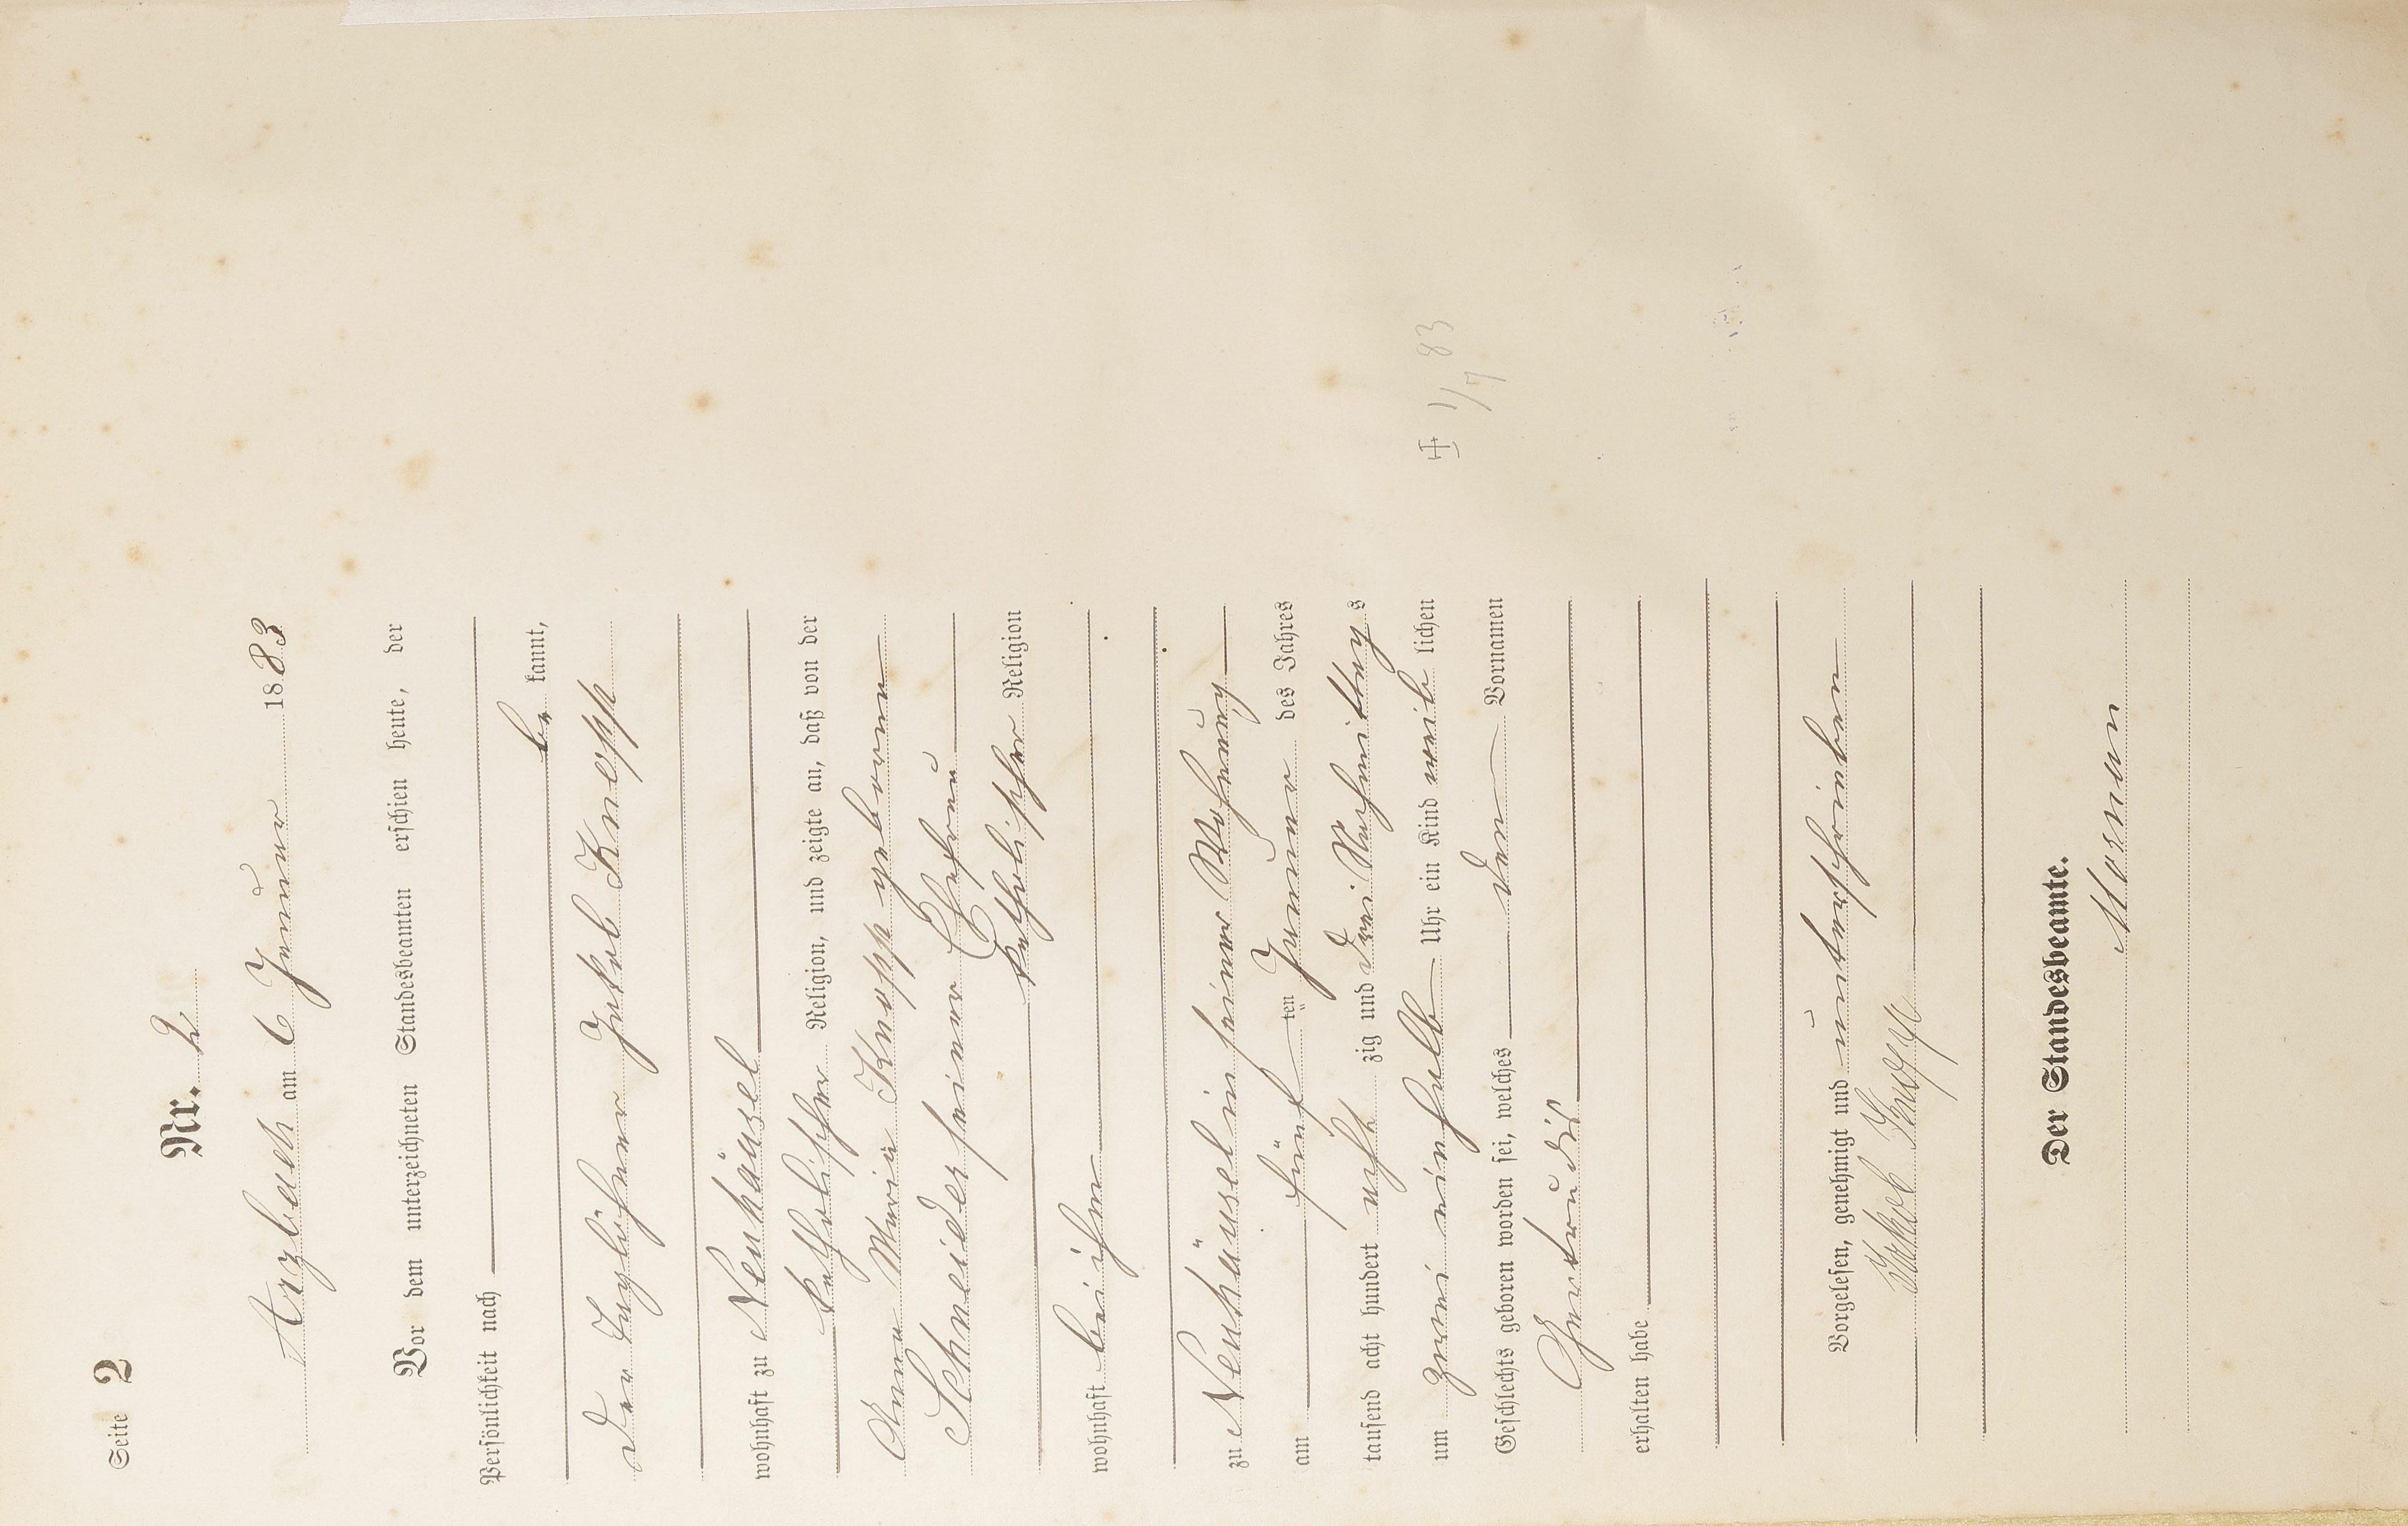 Seite 2
Nr. 2
Arzbach am 6 Januar 1883
Vor dem unterzeichneten Standesbeamten erschien heute, der
Persönlichkeit nach
be kannt,
der Taglöhner Jakob Knopp
wohnhaft zu Neuhäusel
katholischer Religion, und zeigte an, daß von der
Anna Maria Knopp geborene
Schneider seiner Ehefrau
katholischer Religion
wohnhaft bei ihm
zu Neuhäusel in seiner Wohnung
am fünf ten Januar des Jahres
tausend acht hundert acht zig und drei Nachmittag s
um zwei einhalb Uhr ein Kind weib lichen
Geschlechts geboren worden sei, welches den Vornamen
Gertrudis
erhalten habe
Vorgelesen, genehmigt und unterschrieben
Jakob Knopp
Der Standesbeamte.
1/7 83